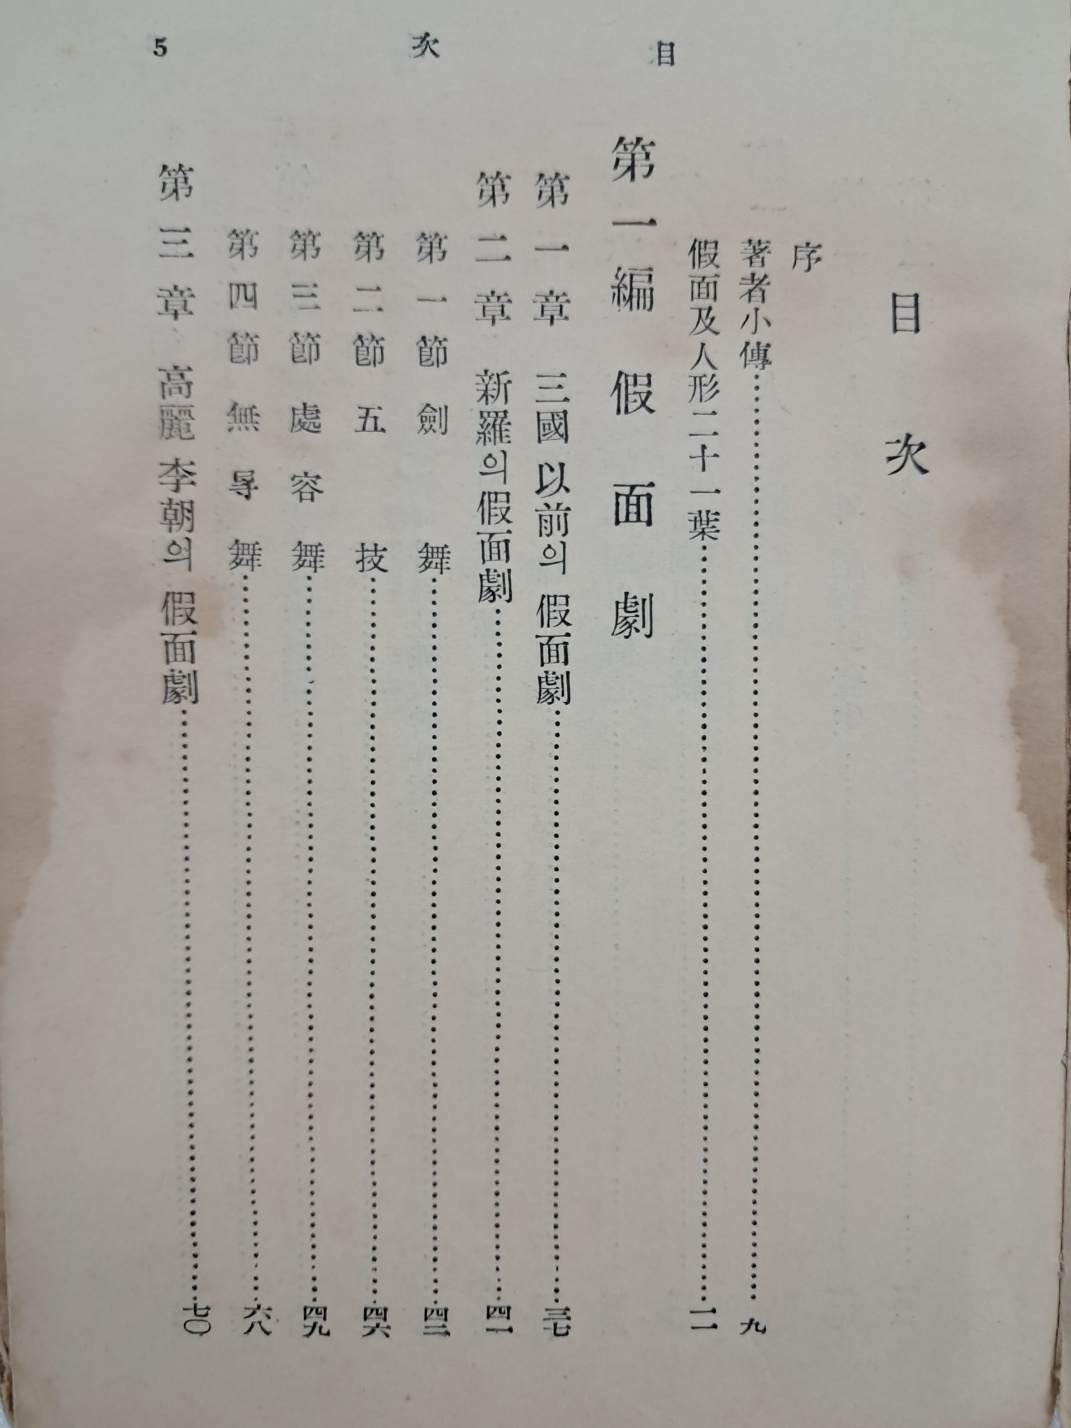 目 次 5
目次
序
著者小傳……九
假面及人形二十一葉……一一
第一編 假面劇
第一章 三國以前의 假面劇……三七
第二章 新羅의 假面劇……四一
第一節 劍舞……四二
第二節 五技……四六
第三節 處容舞……四九
第四節 無㝵舞……六八
第三章 高麗 李朝의 假面劇……七〇